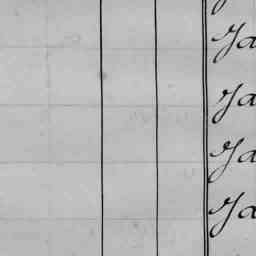 Ja
Ja
Ja
Ja